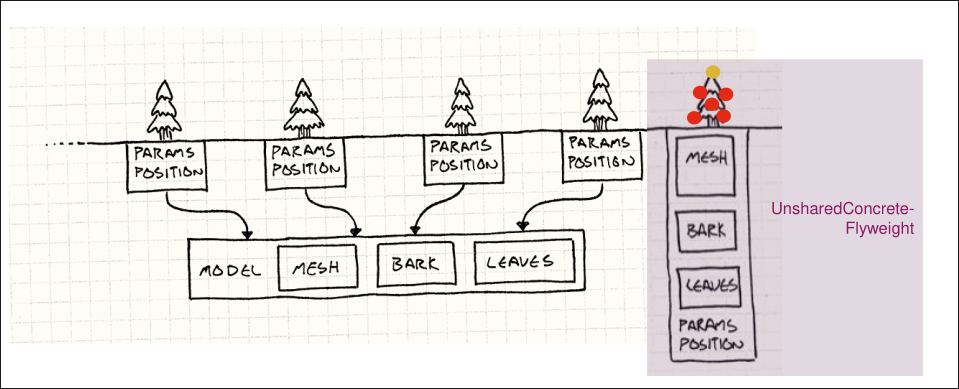 PARAMS
POSITION
PARAMS
POSITION
PARAMS
POSITION
PARAMS
POSITION
MODEL
MESH
BARK
LEAVES
MESH
BARK
LEAVES
PARAMS
POSITION
UnsharedConcrete-
Flyweight